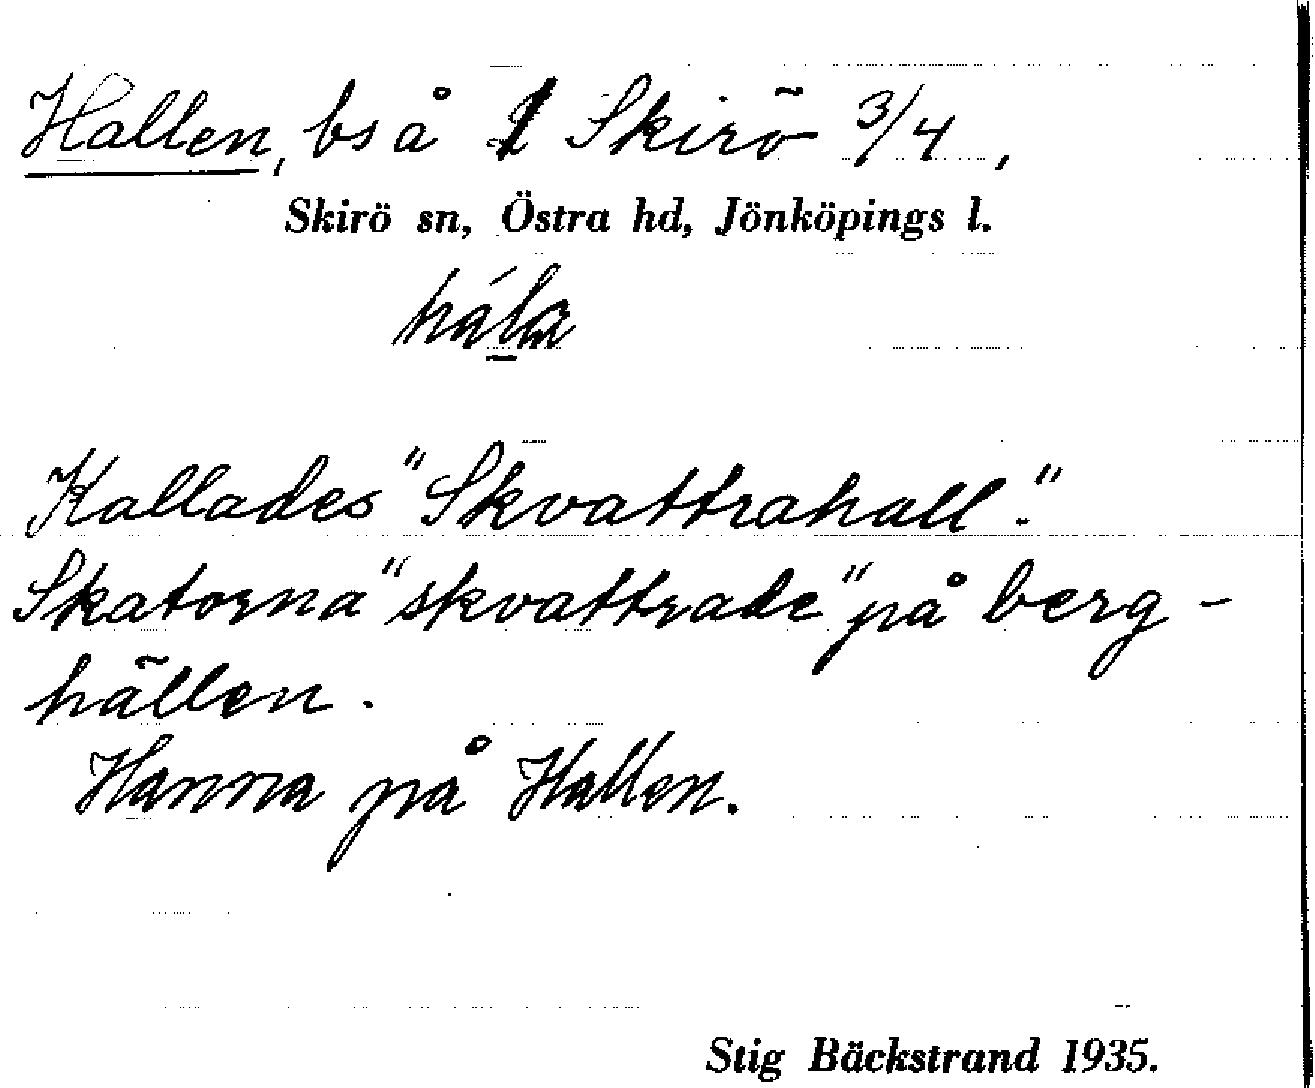 Hallen, bs å 1 Skirö 3/4,
Skirö sn, Östra hd, Jönköpings l.
Kallades "Skvattrahall".
Skatorna "skvattrade" på berg-
hällen.
Hanna på Hallen.
Stig Bäckstrand 1935.